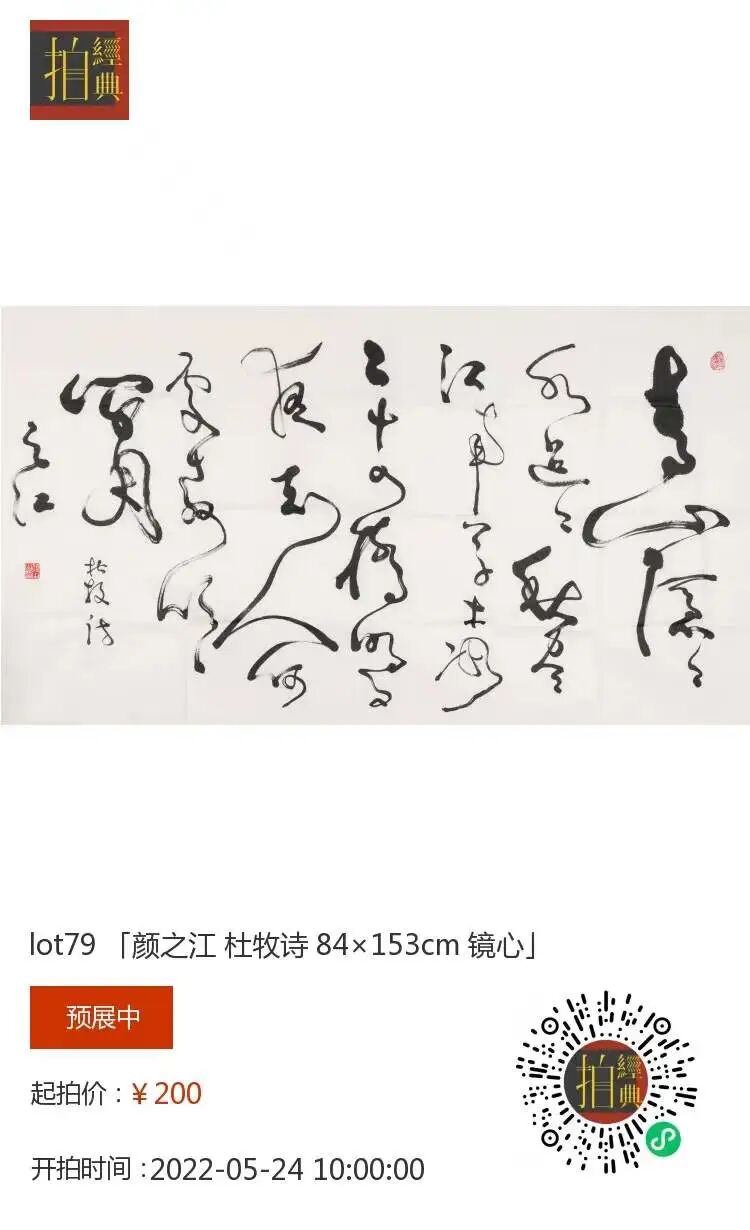 經典
拍
青山隐〻
水迢〻秋尽
江南草木凋
二十四桥明月
夜玉人何
处教吹
箫
杜牧诗
之江
lot79 「颜之江 杜牧诗 84×153cm 镜心」
预展中
起拍价：¥200
开拍时间：2022-05-24 10:00:00
經典
拍